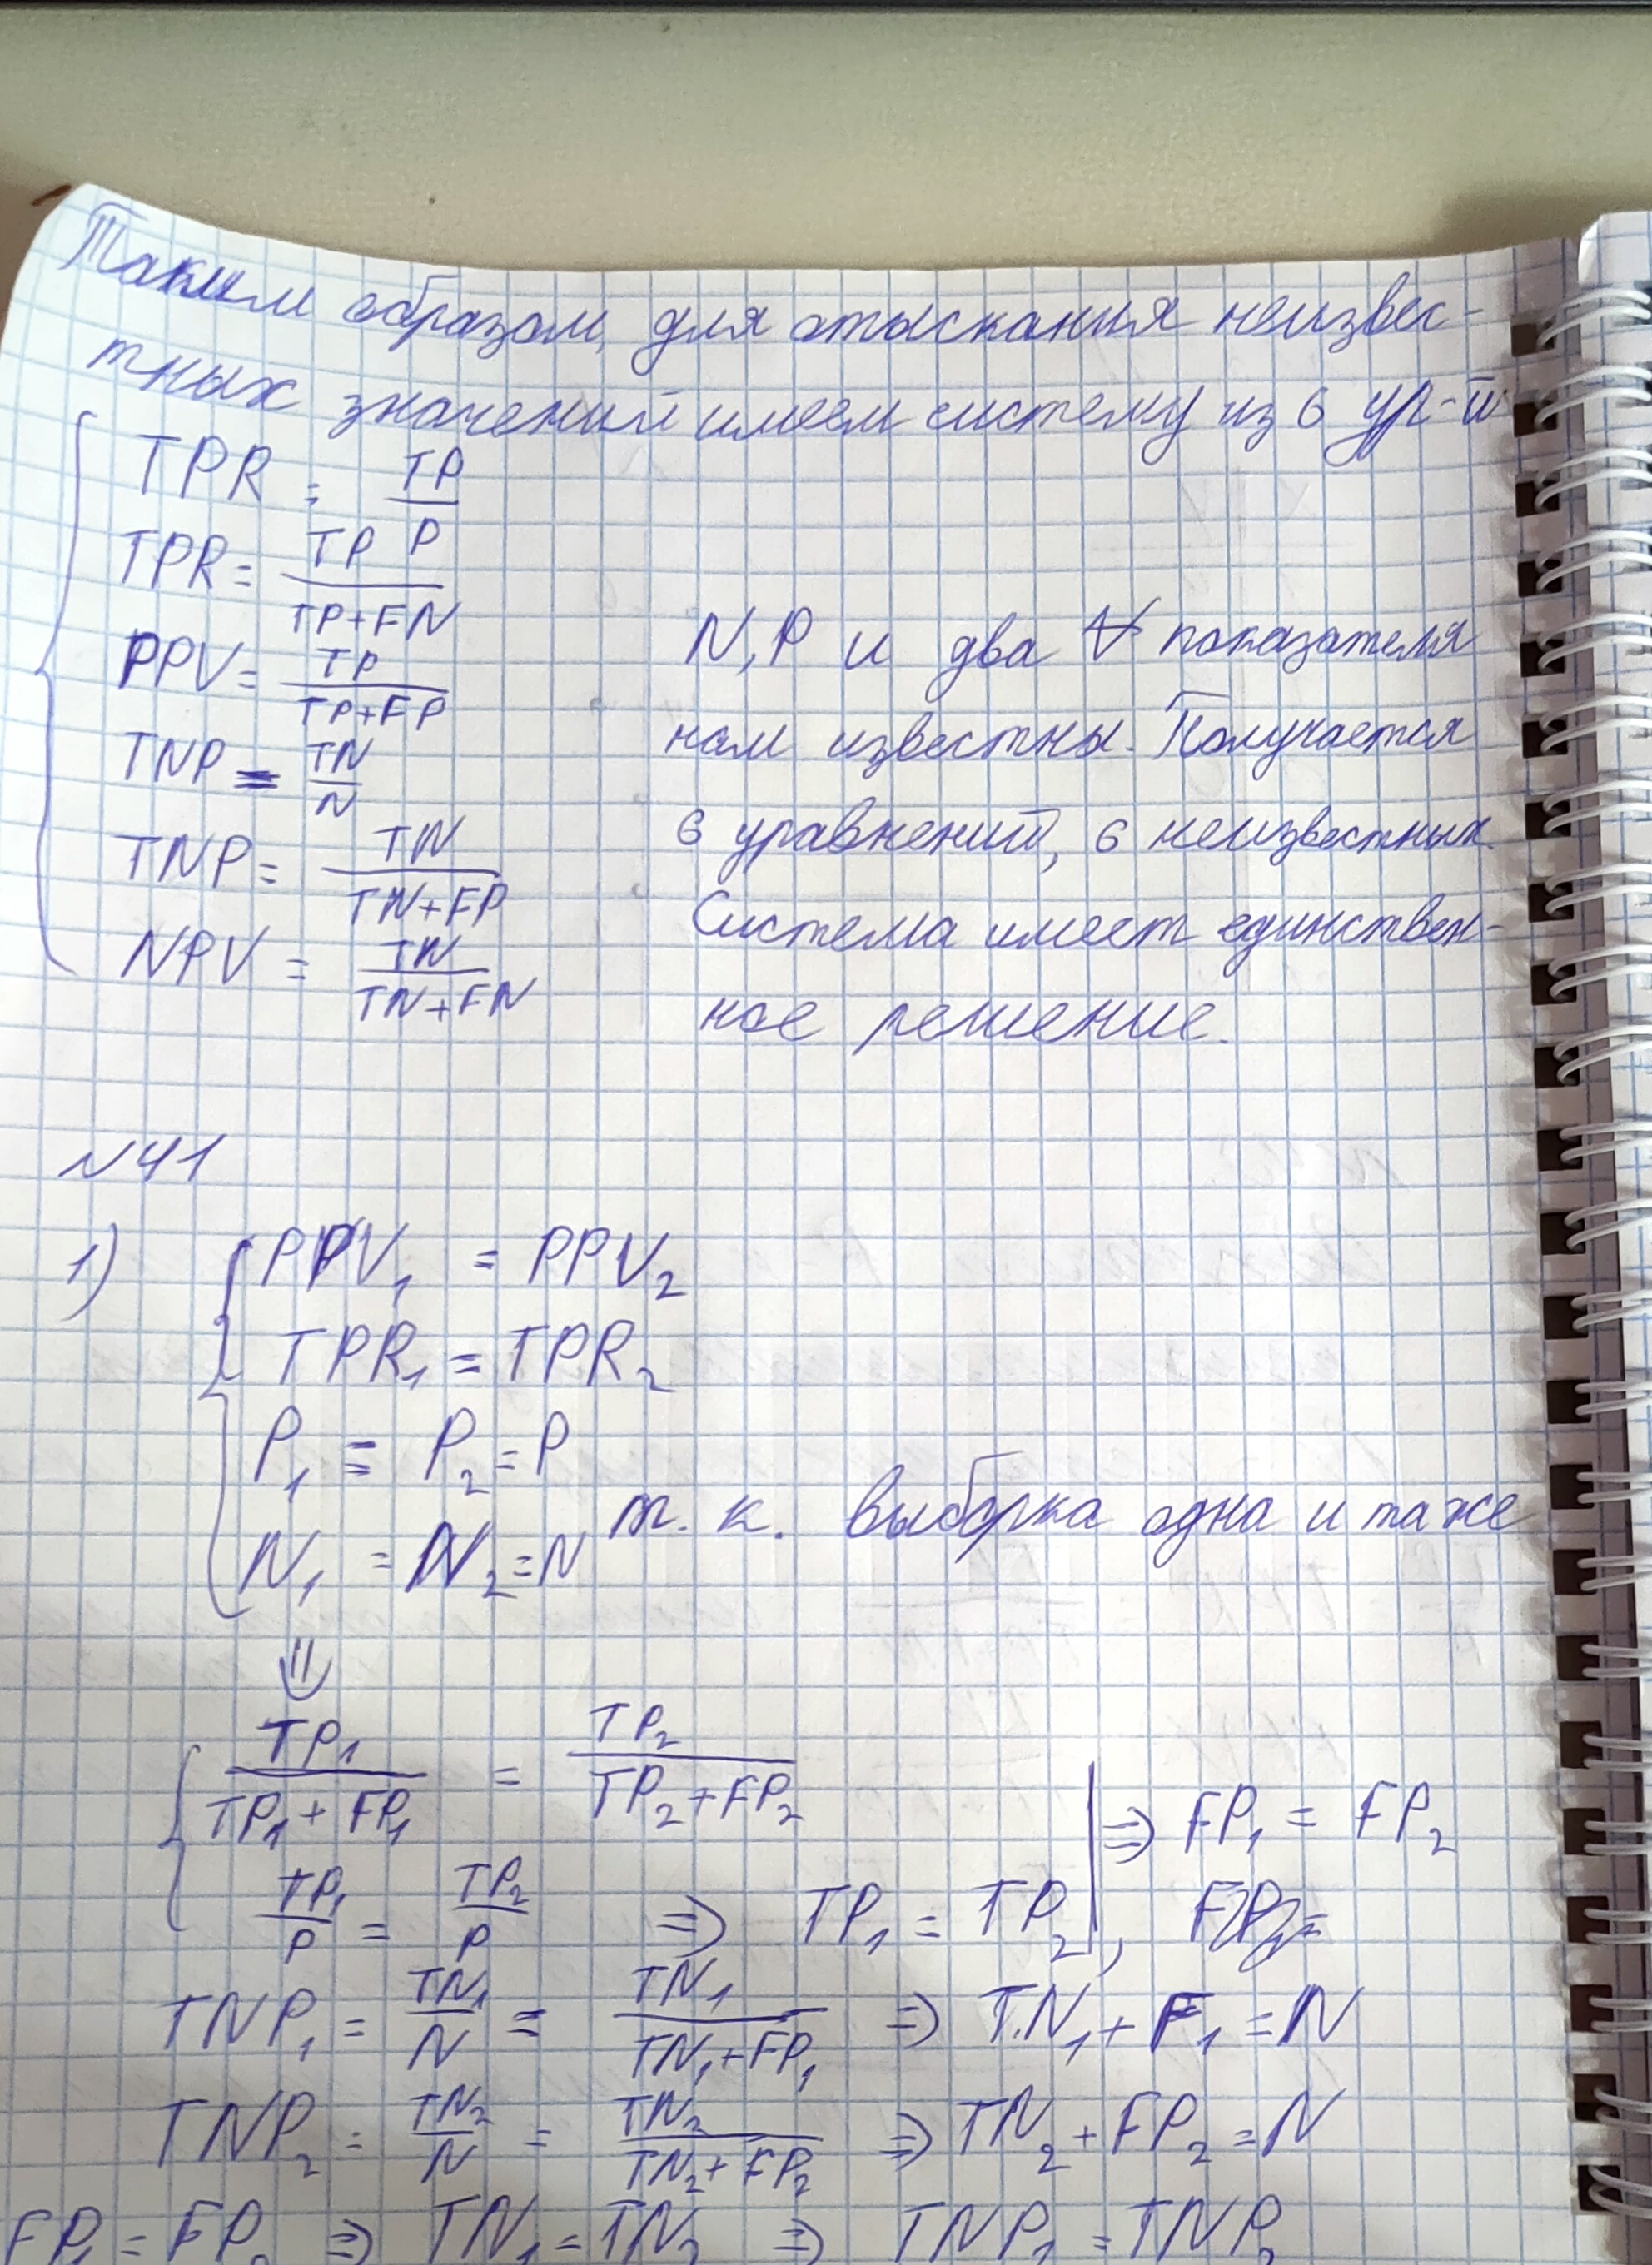 Таким образом, для отыскания неизвес-
тных значений имеем систему из 6 ур-й
TPR = TP/P
TPR = TP/(TP+FN)
PPV = TP/(TP+FP)
TNP = TN/N
TNP = TN/(TN+FP)
NPV = TN/(TN+FN)
N, P и два ∀ показателя
нам известны. Получается
6 уравнений, 6 неизвестных.
Система имеет единствен-
ное решение.
№41
1) PPV₁ = PPV₂
TPR₁ = TPR₂
P₁ = P₂ = P
N₁ = N₂ = N т. к. выборка одна и таже
⇓
TP₁/(TP₁+FP₁) = TP₂/(TP₂+FP₂) ⇒ FP₁ = FP₂
TP₁/P = TP₂/P ⇒ TP₁ = TP₂,
TNP₁ = TN₁/N = TN₁/(TN₁+FP₁) ⇒ TN₁+F₁ = N
TNP₂ = TN₂/N = TN₂/(TN₂+FP₂) ⇒ TN₂+FP₂ = N
FP₁ = FP₂ ⇒ TN₁ = TN₂ ⇒ TNP₁ = TNP₂